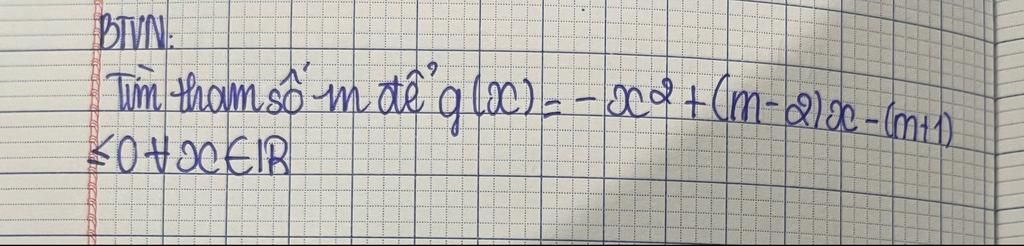 BTVN:
Tìm tham số m để g(x) = -x² + (m-2)x - (m+1)
≤0 ∀ x ∈ ℝ